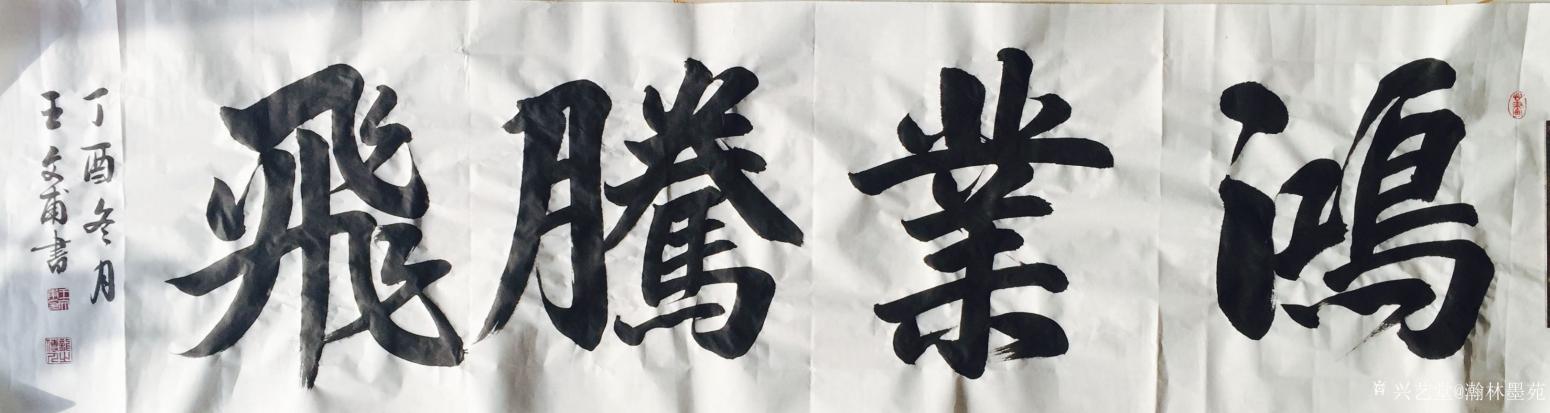 鴻業騰飛
丁酉冬月
王文甫書
兴艺堂@瀚林墨苑